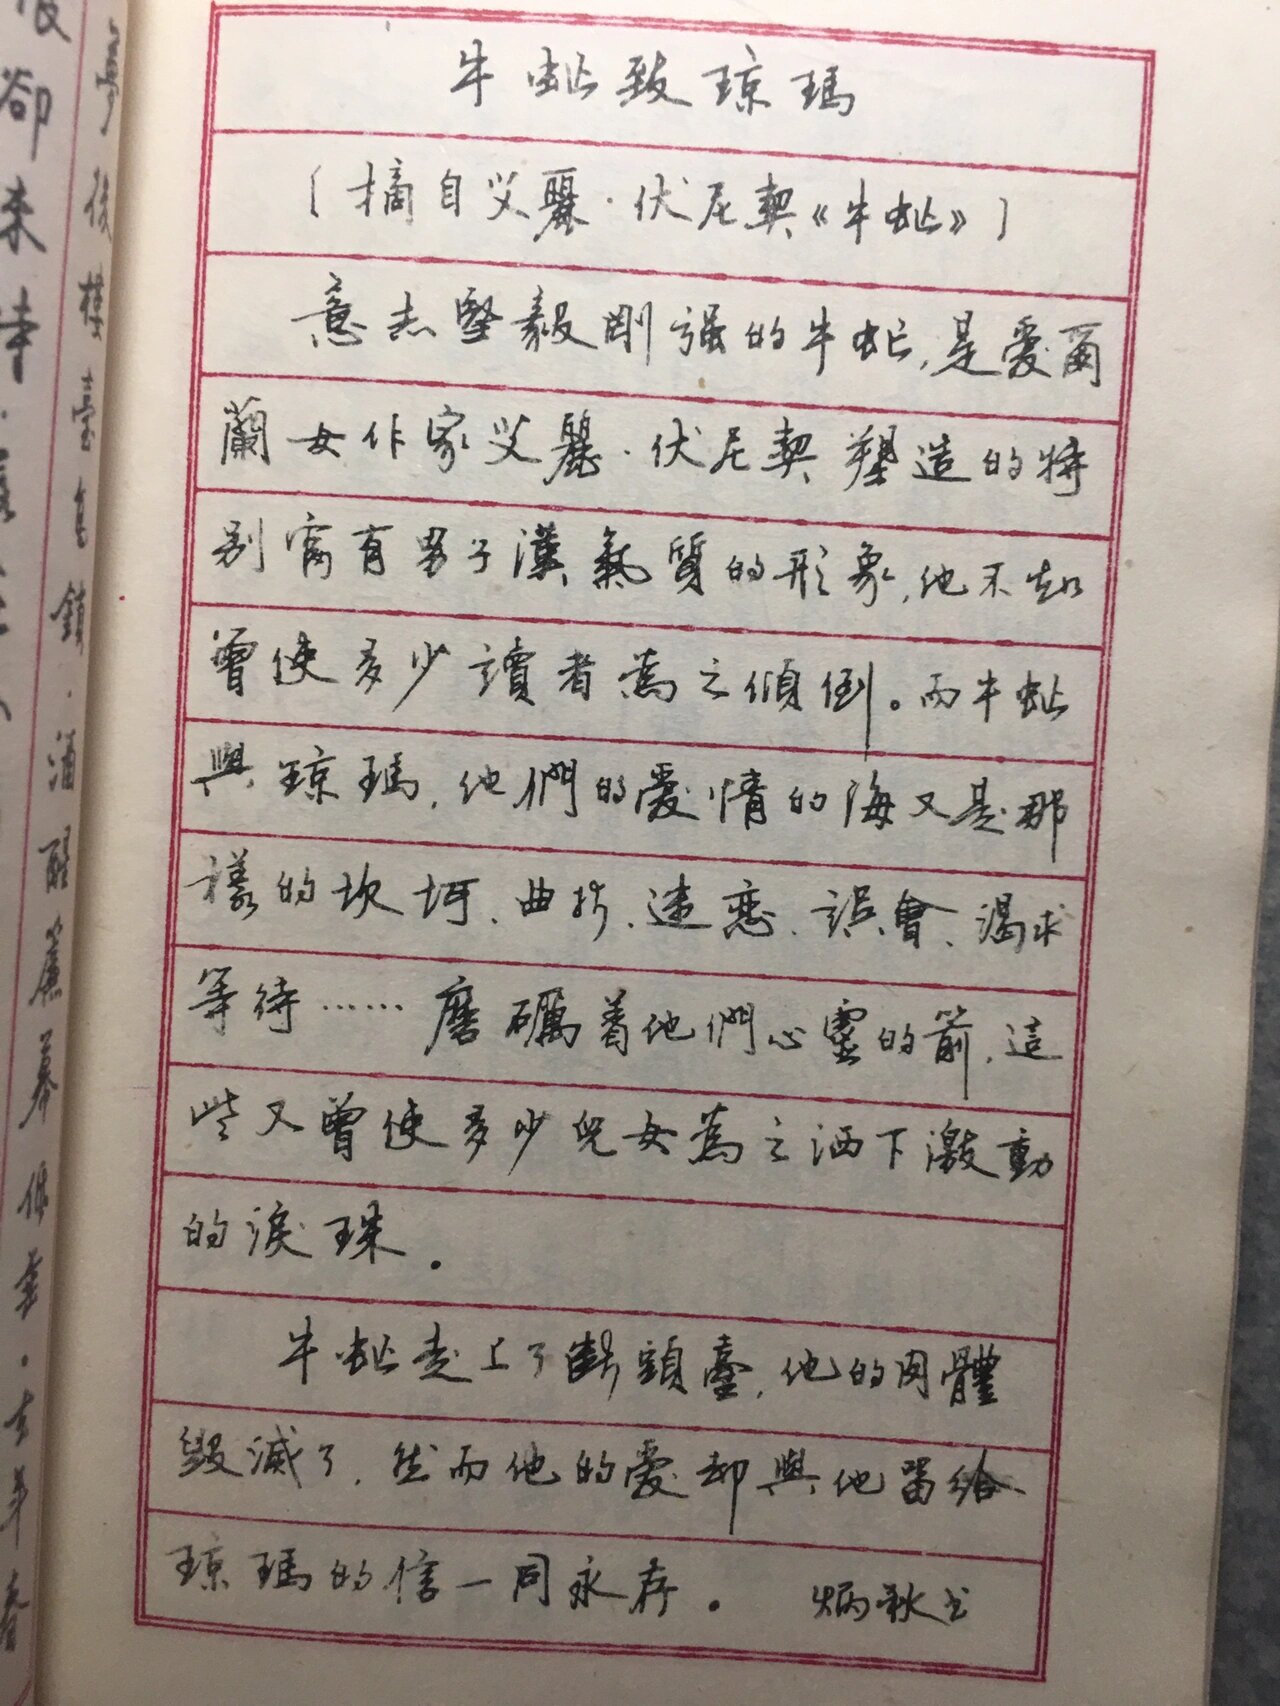 牛虻致琼瑪
(摘自艾麗·伏尼契《牛虻》)
意志堅毅剛强的牛虻,是愛爾
蘭女作家艾麗·伏尼契塑造的特
别富有男子漢氣質的形象,他不知
曾使多少讀者為之傾倒。而牛虻
與琼瑪,他們的愛情的海又是那
樣的坎坷、曲折、迷戀、誤會、渴求
等待……磨礪着他們心靈的箭,這
些又曾使多少兒女為之洒下激動
的淚珠。
牛虻走上了斷頭臺,他的肉體
毀滅了,然而他的愛却與他留給
琼瑪的信一同永存。 炳秋书
夢後樓臺高鎖·酒醒簾幕低垂·去年春
卻來時